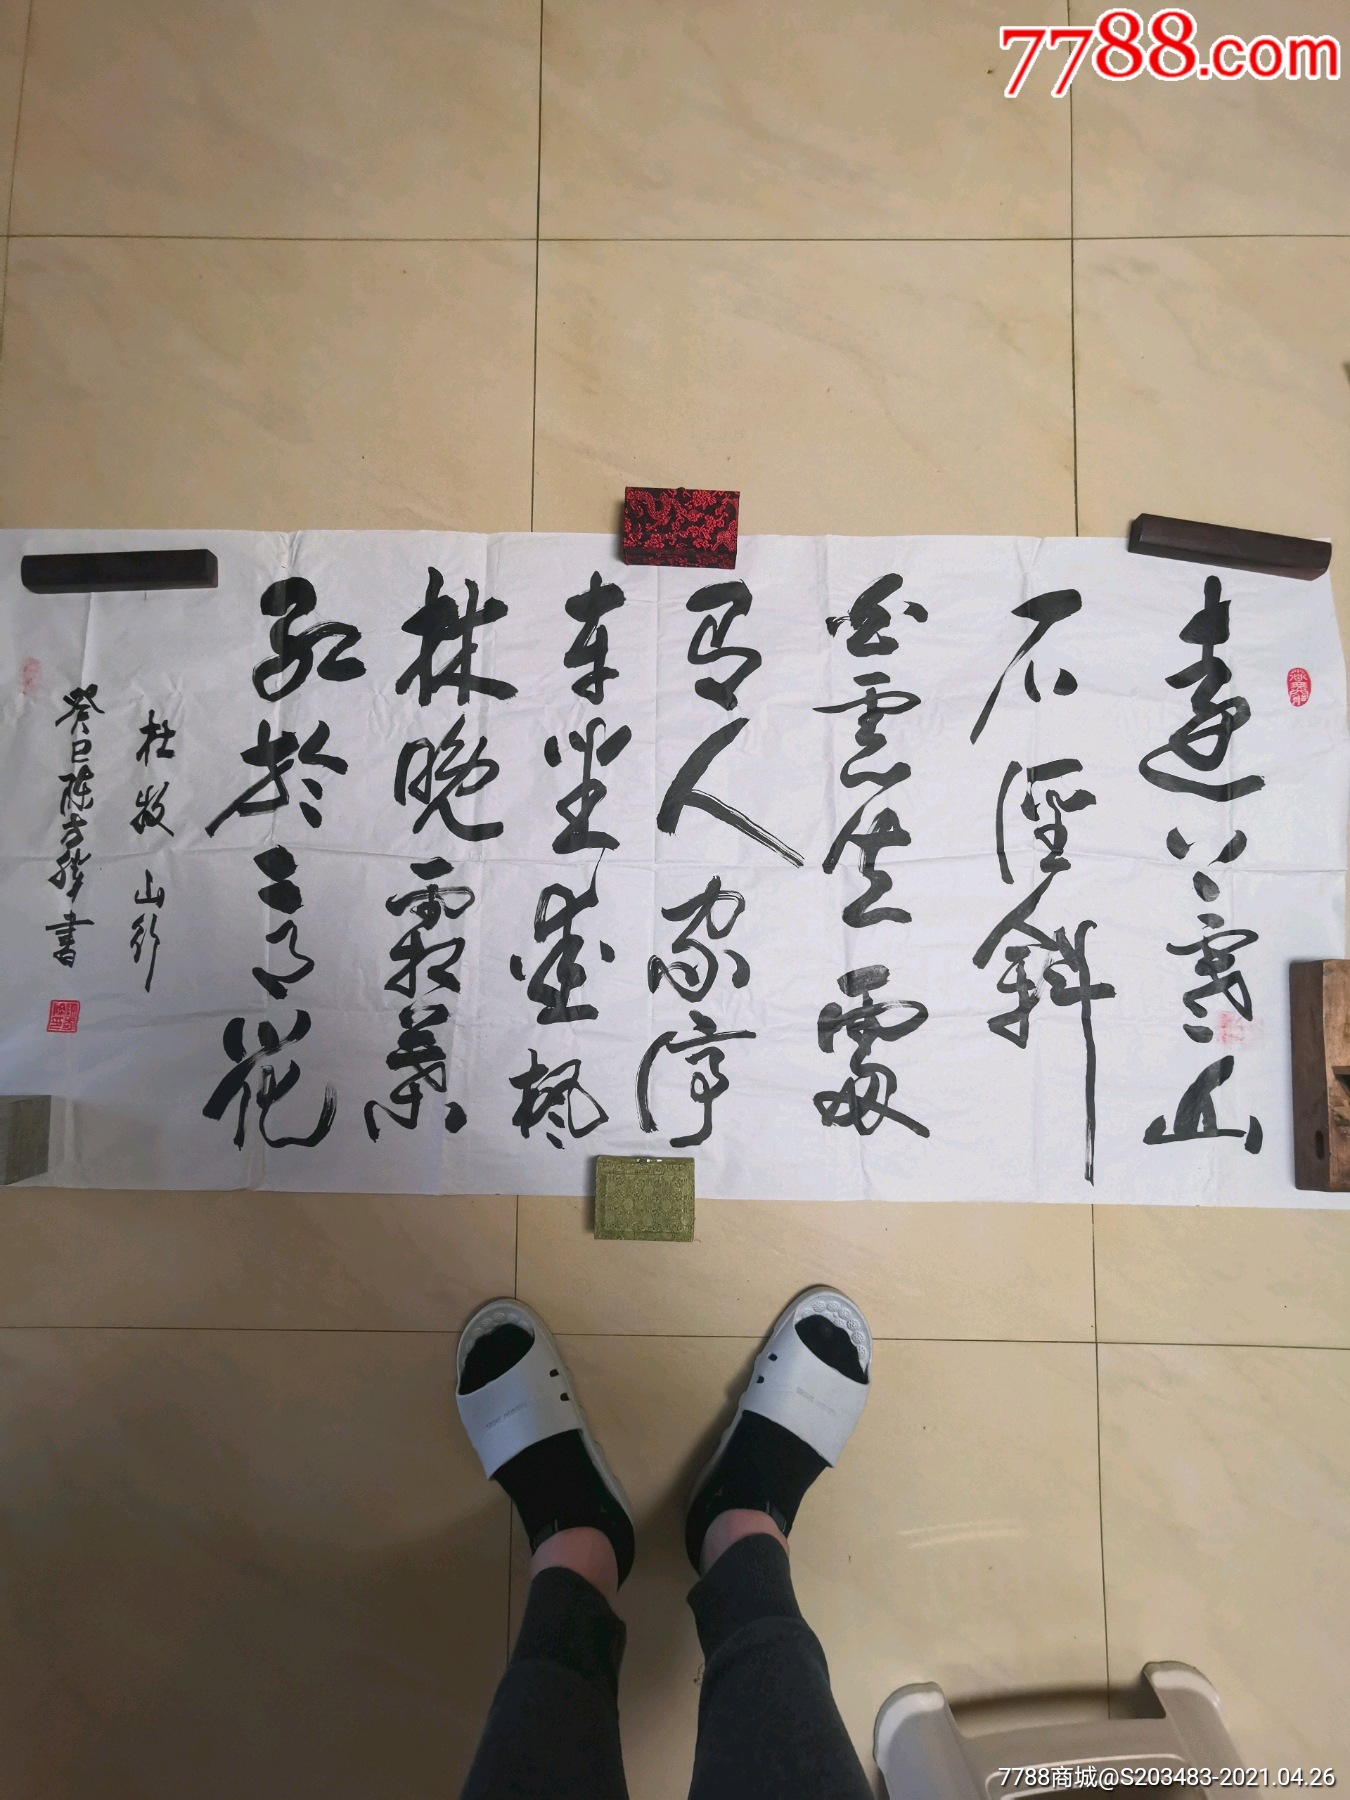 7788.com
遠上寒山
石徑斜
白雲生處
有人家停
车坐愛枫
林晚霜葉
红於二月花
杜牧山行
癸巳陈方書
7788商城@S203483-2021.04.26